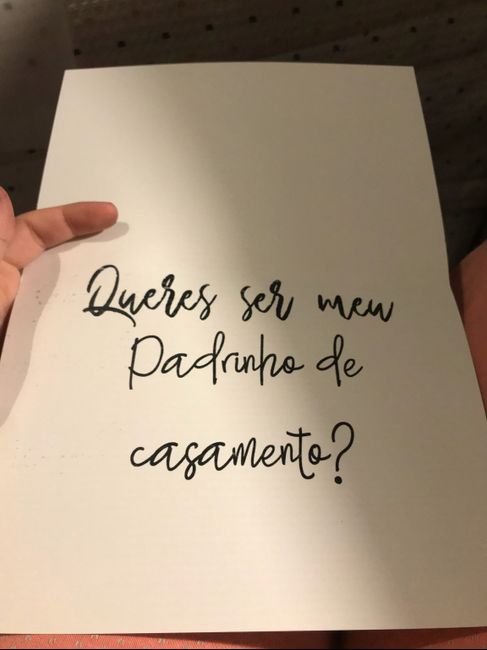 Queres ser meu
Padrinho de
casamento?